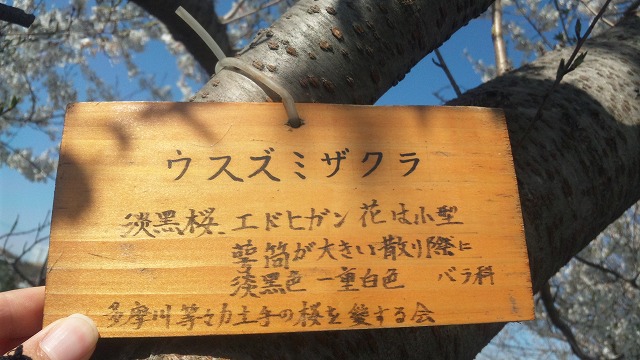 ウスズミザクラ
淡黒桜、エドヒガン 花は小型
萼筒が大きい散り際に
淡黒色 一重白色 バラ科
多摩川等々力土手の桜を愛する会